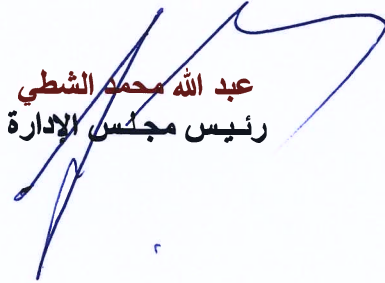 عبد الله محمد الشطي
رئيس مجلس الإدارة